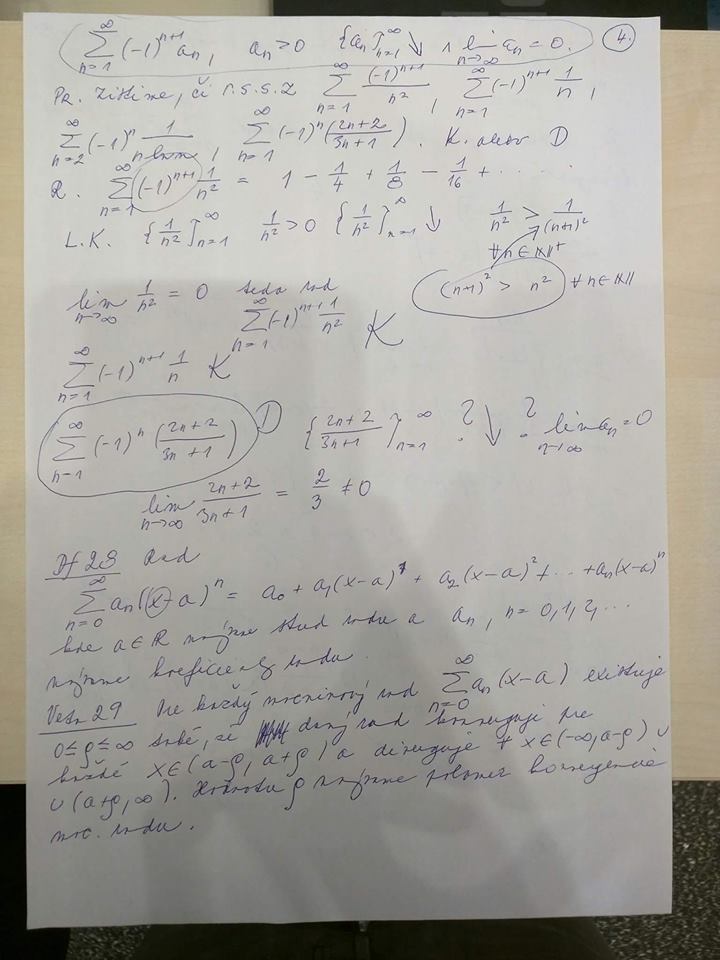 ∑_{n=1}^{∞} (-1)^{n+1} a_n, a_n > 0 {a_n}_{n=1}^{∞} ↓ ∧ lim_{n→∞} a_n = 0. 4.
Pr. Zistime, či n.s.s.z ∑_{n=1}^{∞} (-1)^{n+1}/n², ∑_{n=1}^{∞} (-1)^{n+1} 1/n,
∑_{n=2}^{∞} (-1)^n 1/(n ln n), ∑_{n=1}^{∞} (-1)^n ((2n+2)/(3n+1)). K. alebo D
R. ∑_{n=1}^{∞} (-1)^{n+1} 1/n² = 1 - 1/4 + 1/8 - 1/16 + ....
L.K. {1/n²}_{n=1}^{∞} 1/n² > 0 {1/n²}_{n=1}^{∞} ↓ 1/n² > 1/(n+1)²
∀ n ∈ N⁺
(n+1)² > n² ∀ n ∈ N
lim_{n→∞} 1/n² = 0 teda rad
∑_{n=1}^{∞} (-1)^{n+1} 1/n² K
∑_{n=1}^{∞} (-1)^{n+1} 1/n K
∑_{n=1}^{∞} (-1)^n ((2n+2)/(3n+1)) D {(2n+2)/(3n+1)}_{n=1}^{∞} ? ↓ ? lim_{n→∞} a_n = 0
lim_{n→∞} (2n+2)/(3n+1) = 2/3 ≠ 0
Df 2.8 Rad
∑_{n=0}^{∞} a_n (x-a)^n = a_0 + a_1(x-a)^1 + a_2(x-a)^2 + ... + a_n(x-a)^n
kde a ∈ R nazýva stred radu a a_n, n = 0,1,2,...
nazývame koeficienty radu.
Veta 29 Pre každý mocninový rad ∑_{n=0}^{∞} a_n (x-a) existuje
0 ≤ ρ ≤ ∞ také, že daný rad konverguje pre
každé x ∈ (a-ρ, a+ρ) a diverguje ∀ x ∈ (-∞, a-ρ) ∪
∪ (a+ρ, ∞). Hodnotu ρ nazývame polomer konvergencie
moc. radu.